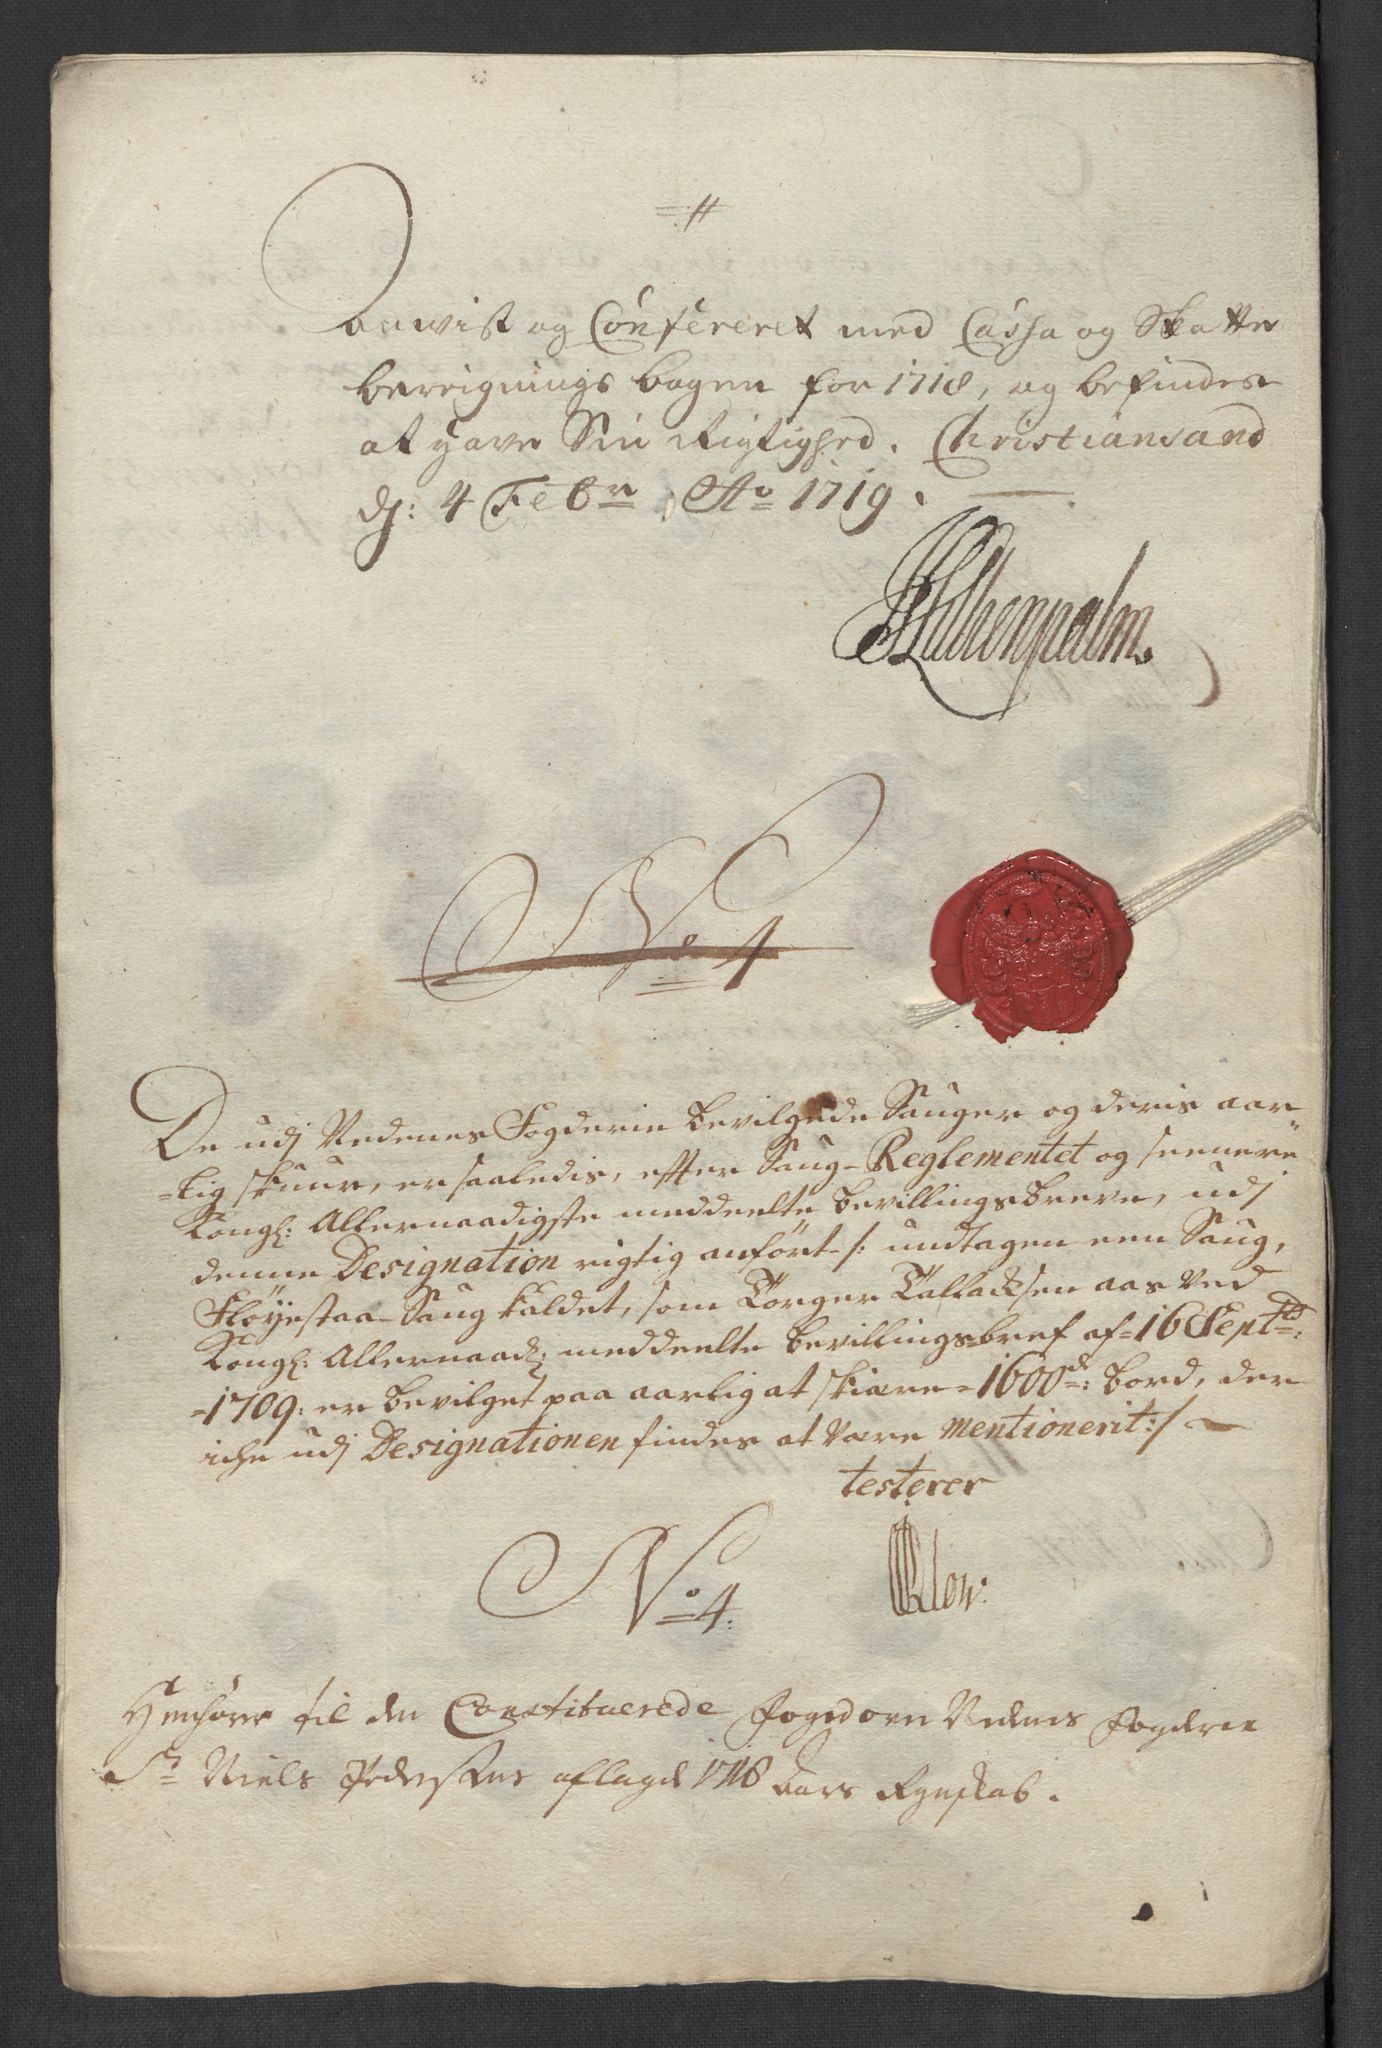 Anvist og Confereret med Cassa og Skatte
bereignings bogen for 1718, og befindes
at have Sin Rigtighed. Christiansand
dj: 4 Febr: Ao 1719.
No 4
De udj Nedenes Fogderie bevilgede Sauger og deris aar-
-lig skuur, er saaledis, efter Saug-Reglementet og seenere
Kongl: Allernaadigste meddeelte bevillingsbreve, udj
denne Designation rigtig anført /: undtagen een Saug,
Fløyestaa-Saug kaldet, som Torger Tallacksen aas ved
Kongl: Allernaad: meddeelte bevillingsbref af 16 Septb:
1709: er bevilget paa aarlig at skiære 1600de: bord, der
iche udj Designationen findes at være mentionerit :/
testerer
No 4:
Henhører til den Constituerede foged over Nedenes fogderie
Sr Niels Pedersens aflagde 1718 Aars Regnskab.